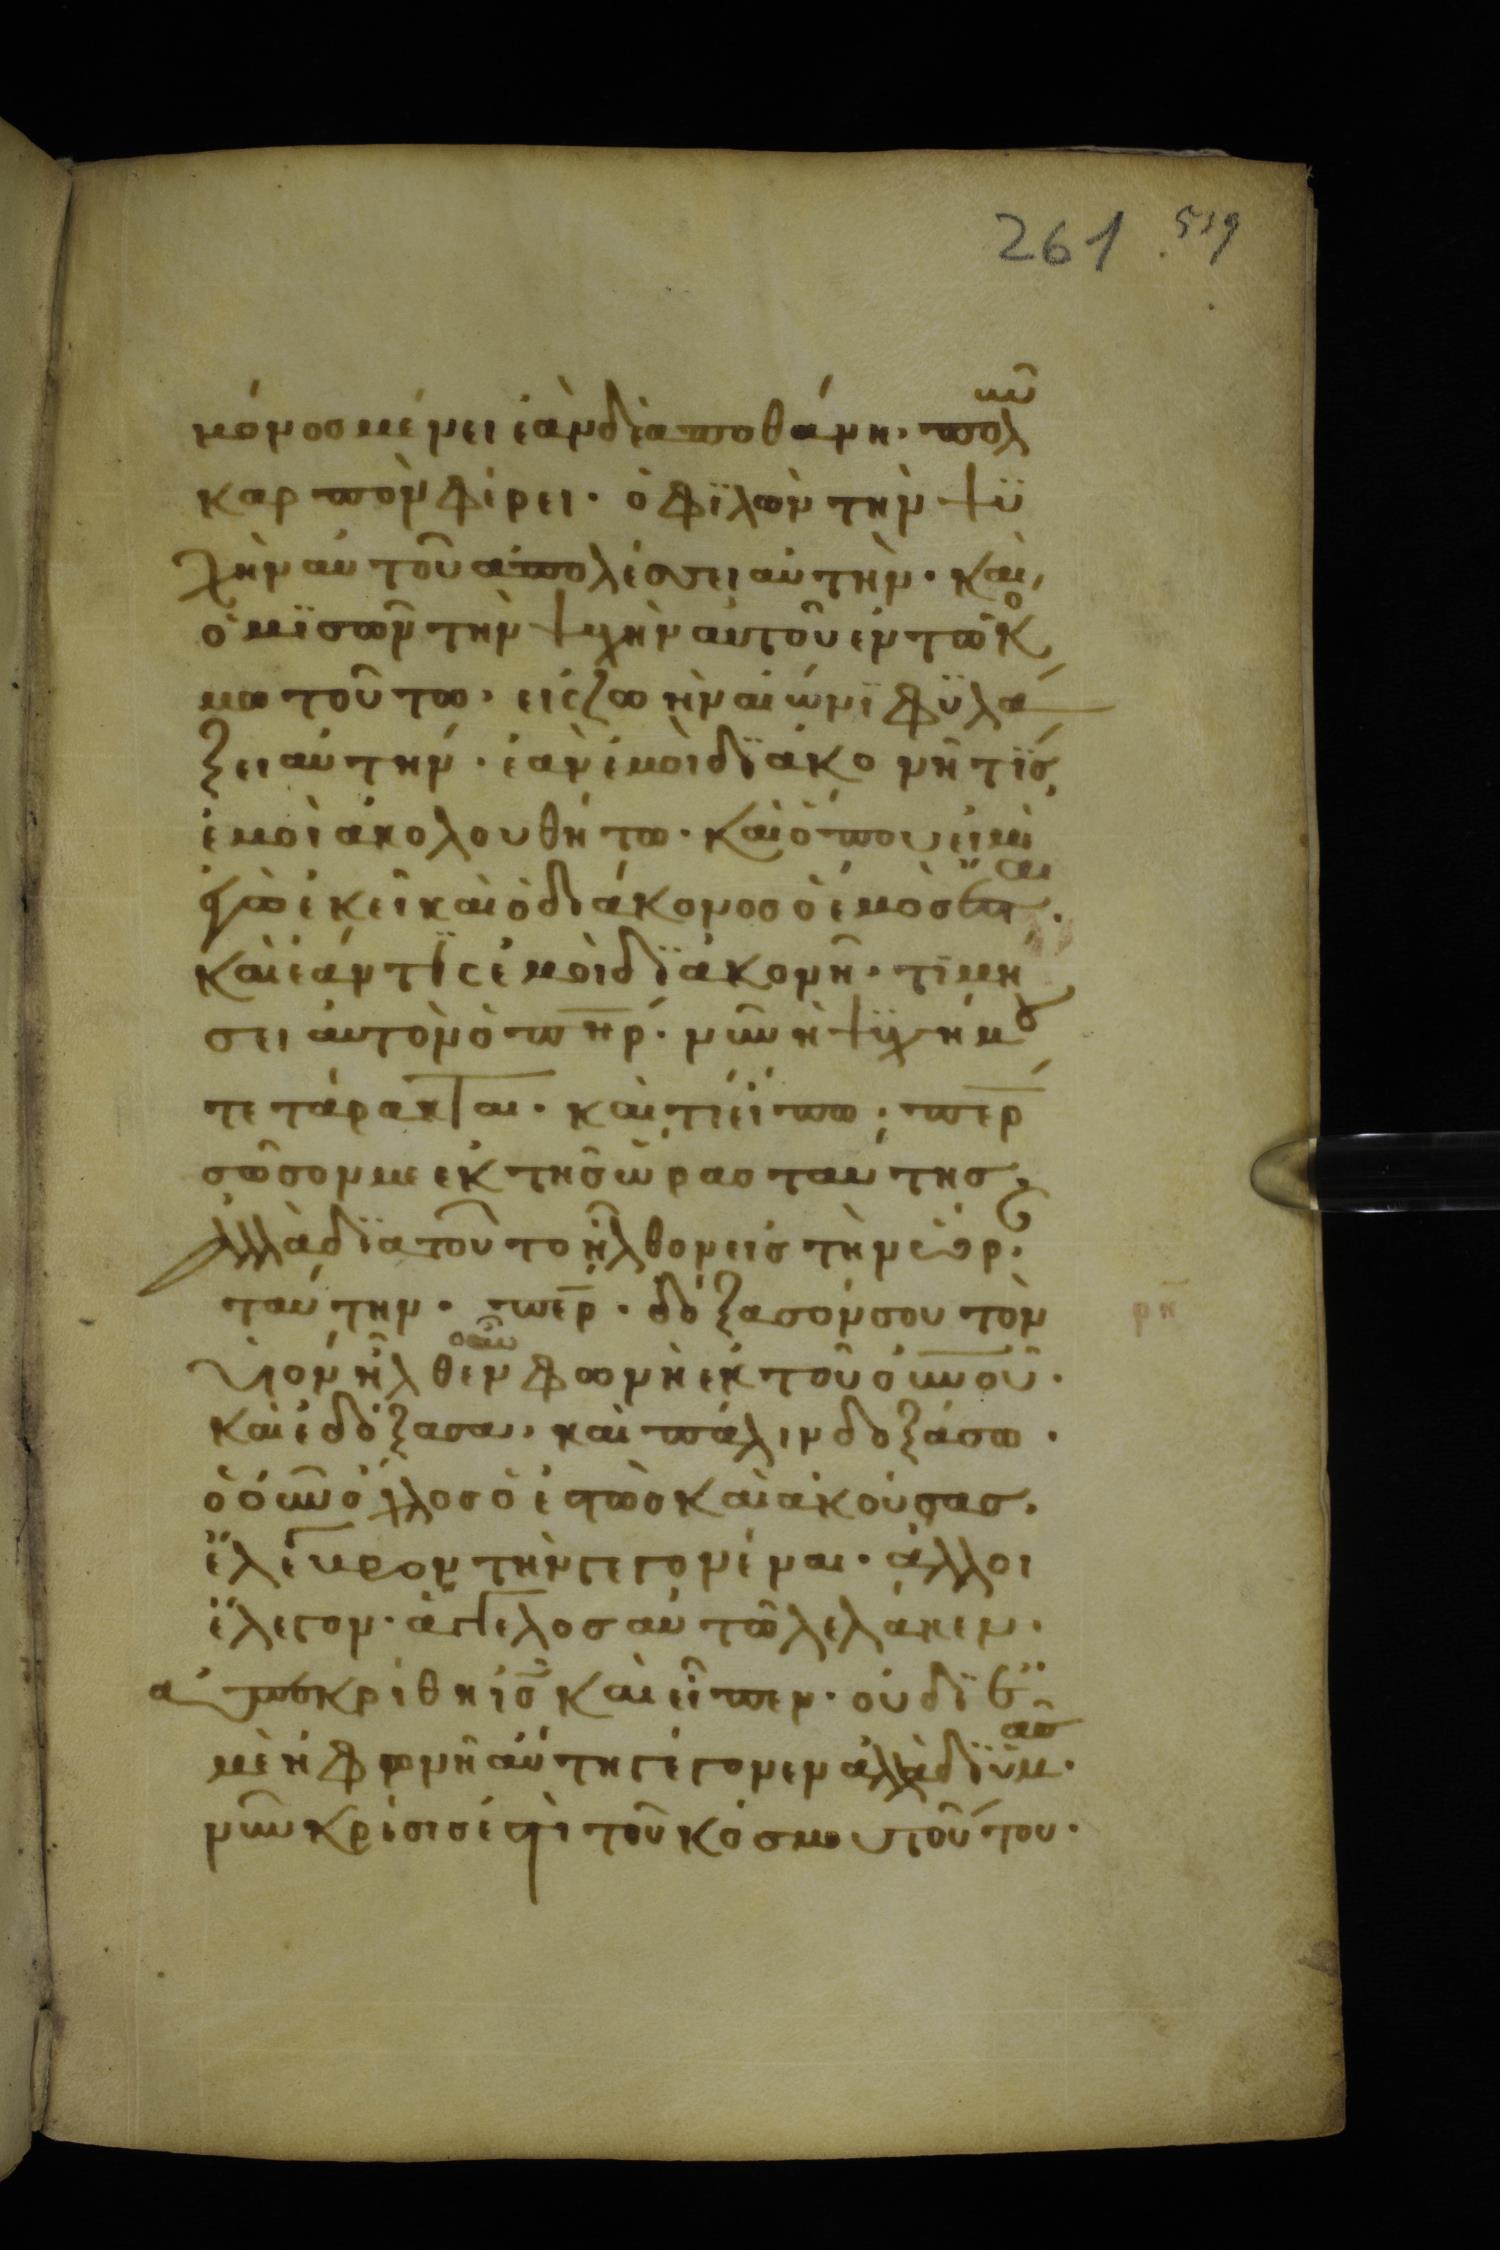 261 519
μόνος μένει ἐὰν δὲ ἀποθάνη· πολὺν
καρπὸν φέρει· ὁ φϊλῶν τὴν ψϋ
χὴν αὐτοῦ ἀπολέσει αὐτὴν· καὶ
ὁ μϊσῶν τὴν ψυχὴν αὐτοῦ ἐν τῶ κό
μω τούτω· εἰς ζωὴν αἰώνϊ φϋλά
ξει αὐτήν· ἐὰν ἐμοὶ δϊάκονῆ τϊς
ἐμοὶ ἀκολουθήτω· καὶ ὅπου εἰμὶ
ἐγὼ ἐκεῖ καὶ ὁ διάκονος ὁ ἐμὸς ἔσται·
καὶ ἐάν τϊς ἐμοὶ δϊάκονῆ· τϊμή
σει αὐτὸν ὁ πηρ· νῦν ἡ ψϋχή μου
τετάρακται· καὶ τί εἴπω; περ
σῶσον με ἐκ τῆς ὥρας ταύτης·
ἀλλὰ δϊὰ τοῦτο ἦλθον εἰς τὴν ὥραν
ταύτην· περ· δόξασόν σου τὸν
υἱόν ἦλθεν οὖν φωνὴ ἐκ τοῦ οὐνοῦ·
καὶ ἐδόξασα, καὶ πάλιν δοξάσω·
ὁ οὖν ὄχλος ὁ ἑστὼς καὶ ἀκούσας·
ἔλεγον βροντὴν γεγονέναι· ἄλλοι
ἔλεγον· ἄγγελος αὐτῶ λελάληκεν·
ἀπεκρίθη ὁ ις καὶ εἶπεν· οὐ δϊ ἐ
μὲ ἡ φωνὴ αὕτη γέγονεν ἀλλὰ δϊ ὑμᾶς·
νῦν κρίσις ἐστὶ τοῦ κόσμου τούτου·
ρη